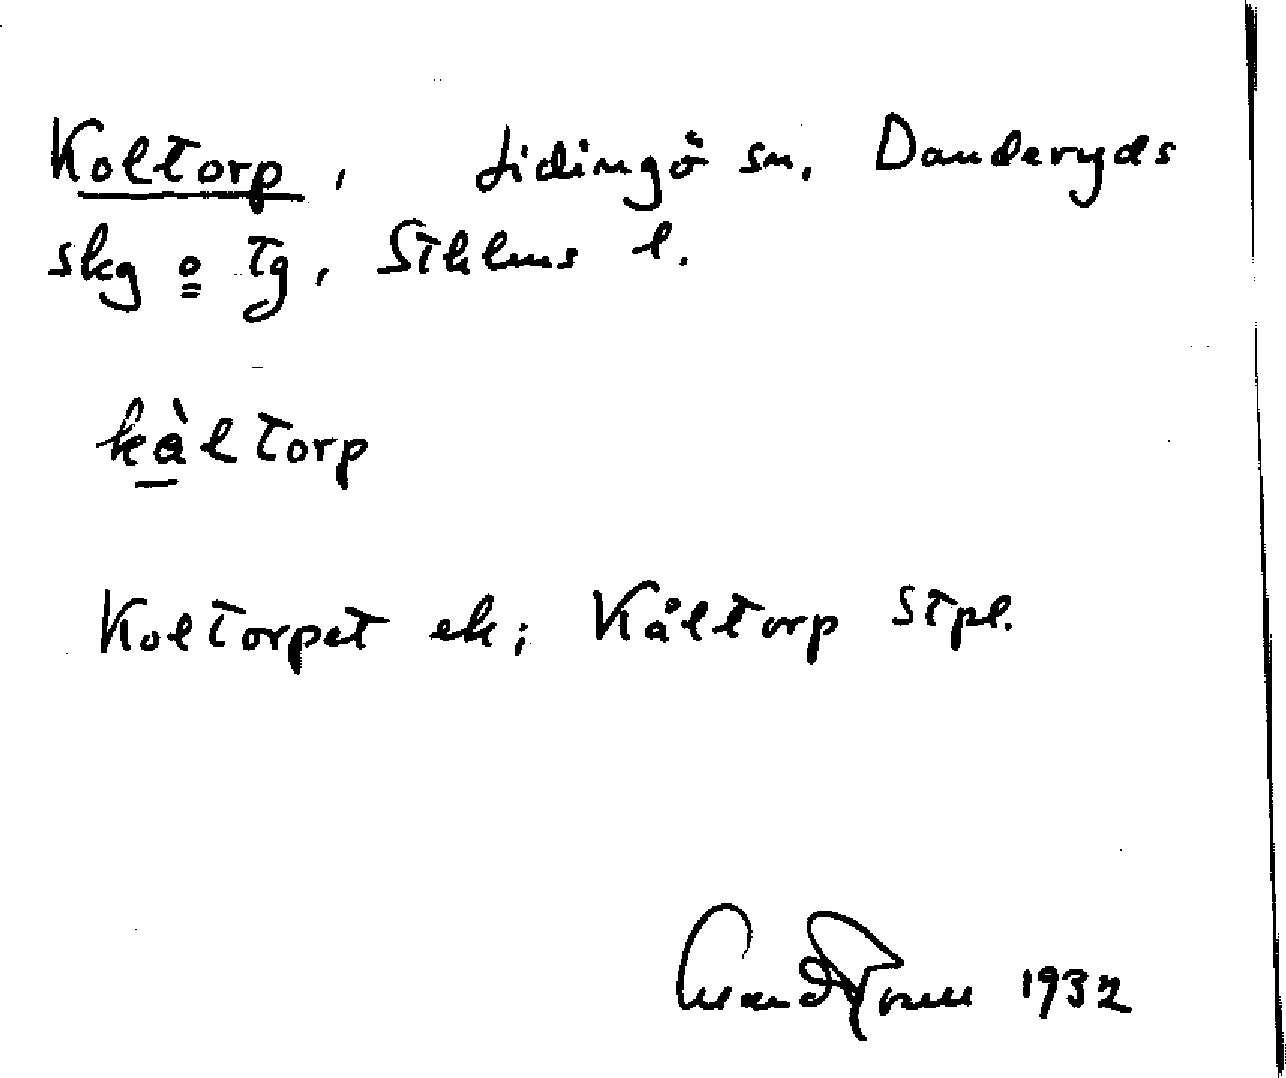 Koltorp, Lidingö sn, Danderyds
skg o tg, Sthlms l.
kàltorp
Koltorpet ek; Kåltorp Stpl.
1932